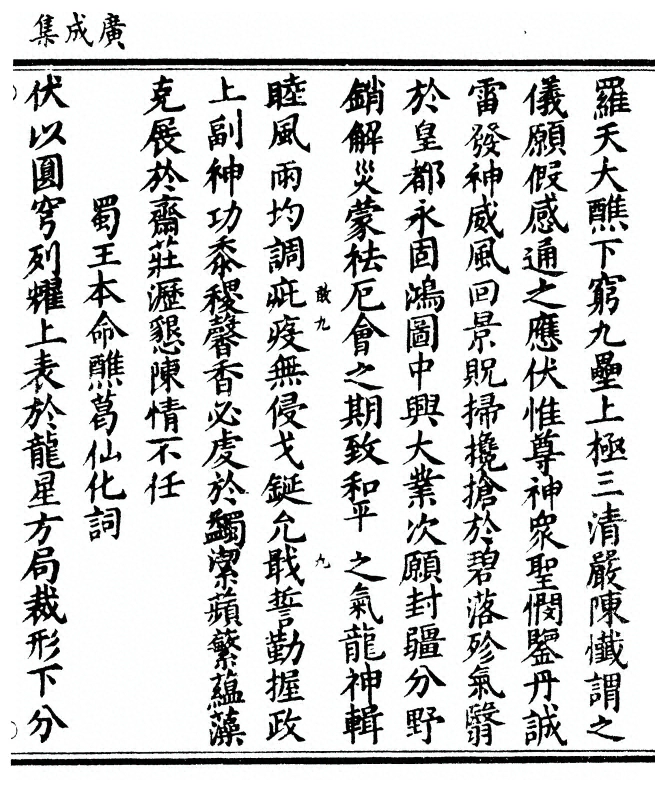 廣成集
羅天大醮下窮九壘上極三清嚴陳懺謂之
儀願假感通之應伏惟尊神衆聖憫鑒丹誠
雷發神威風回景貺掃攙搶於碧落殄氣翳
於皇都永固鴻圖中興大業次願封疆分野
銷解災蒙袪厄會之期致和平之氣龍神輯
敢九
九
睦風雨均調疵疫無侵戈鋋允戢誓勤握政
上副神功黍稷馨香必虔於蠲潔蘋蘩蘊藻
克展於齋莊瀝懇陳情不任
蜀王本命醮葛仙化詞
伏以圓穹列耀上表於龍星方局裁形下分